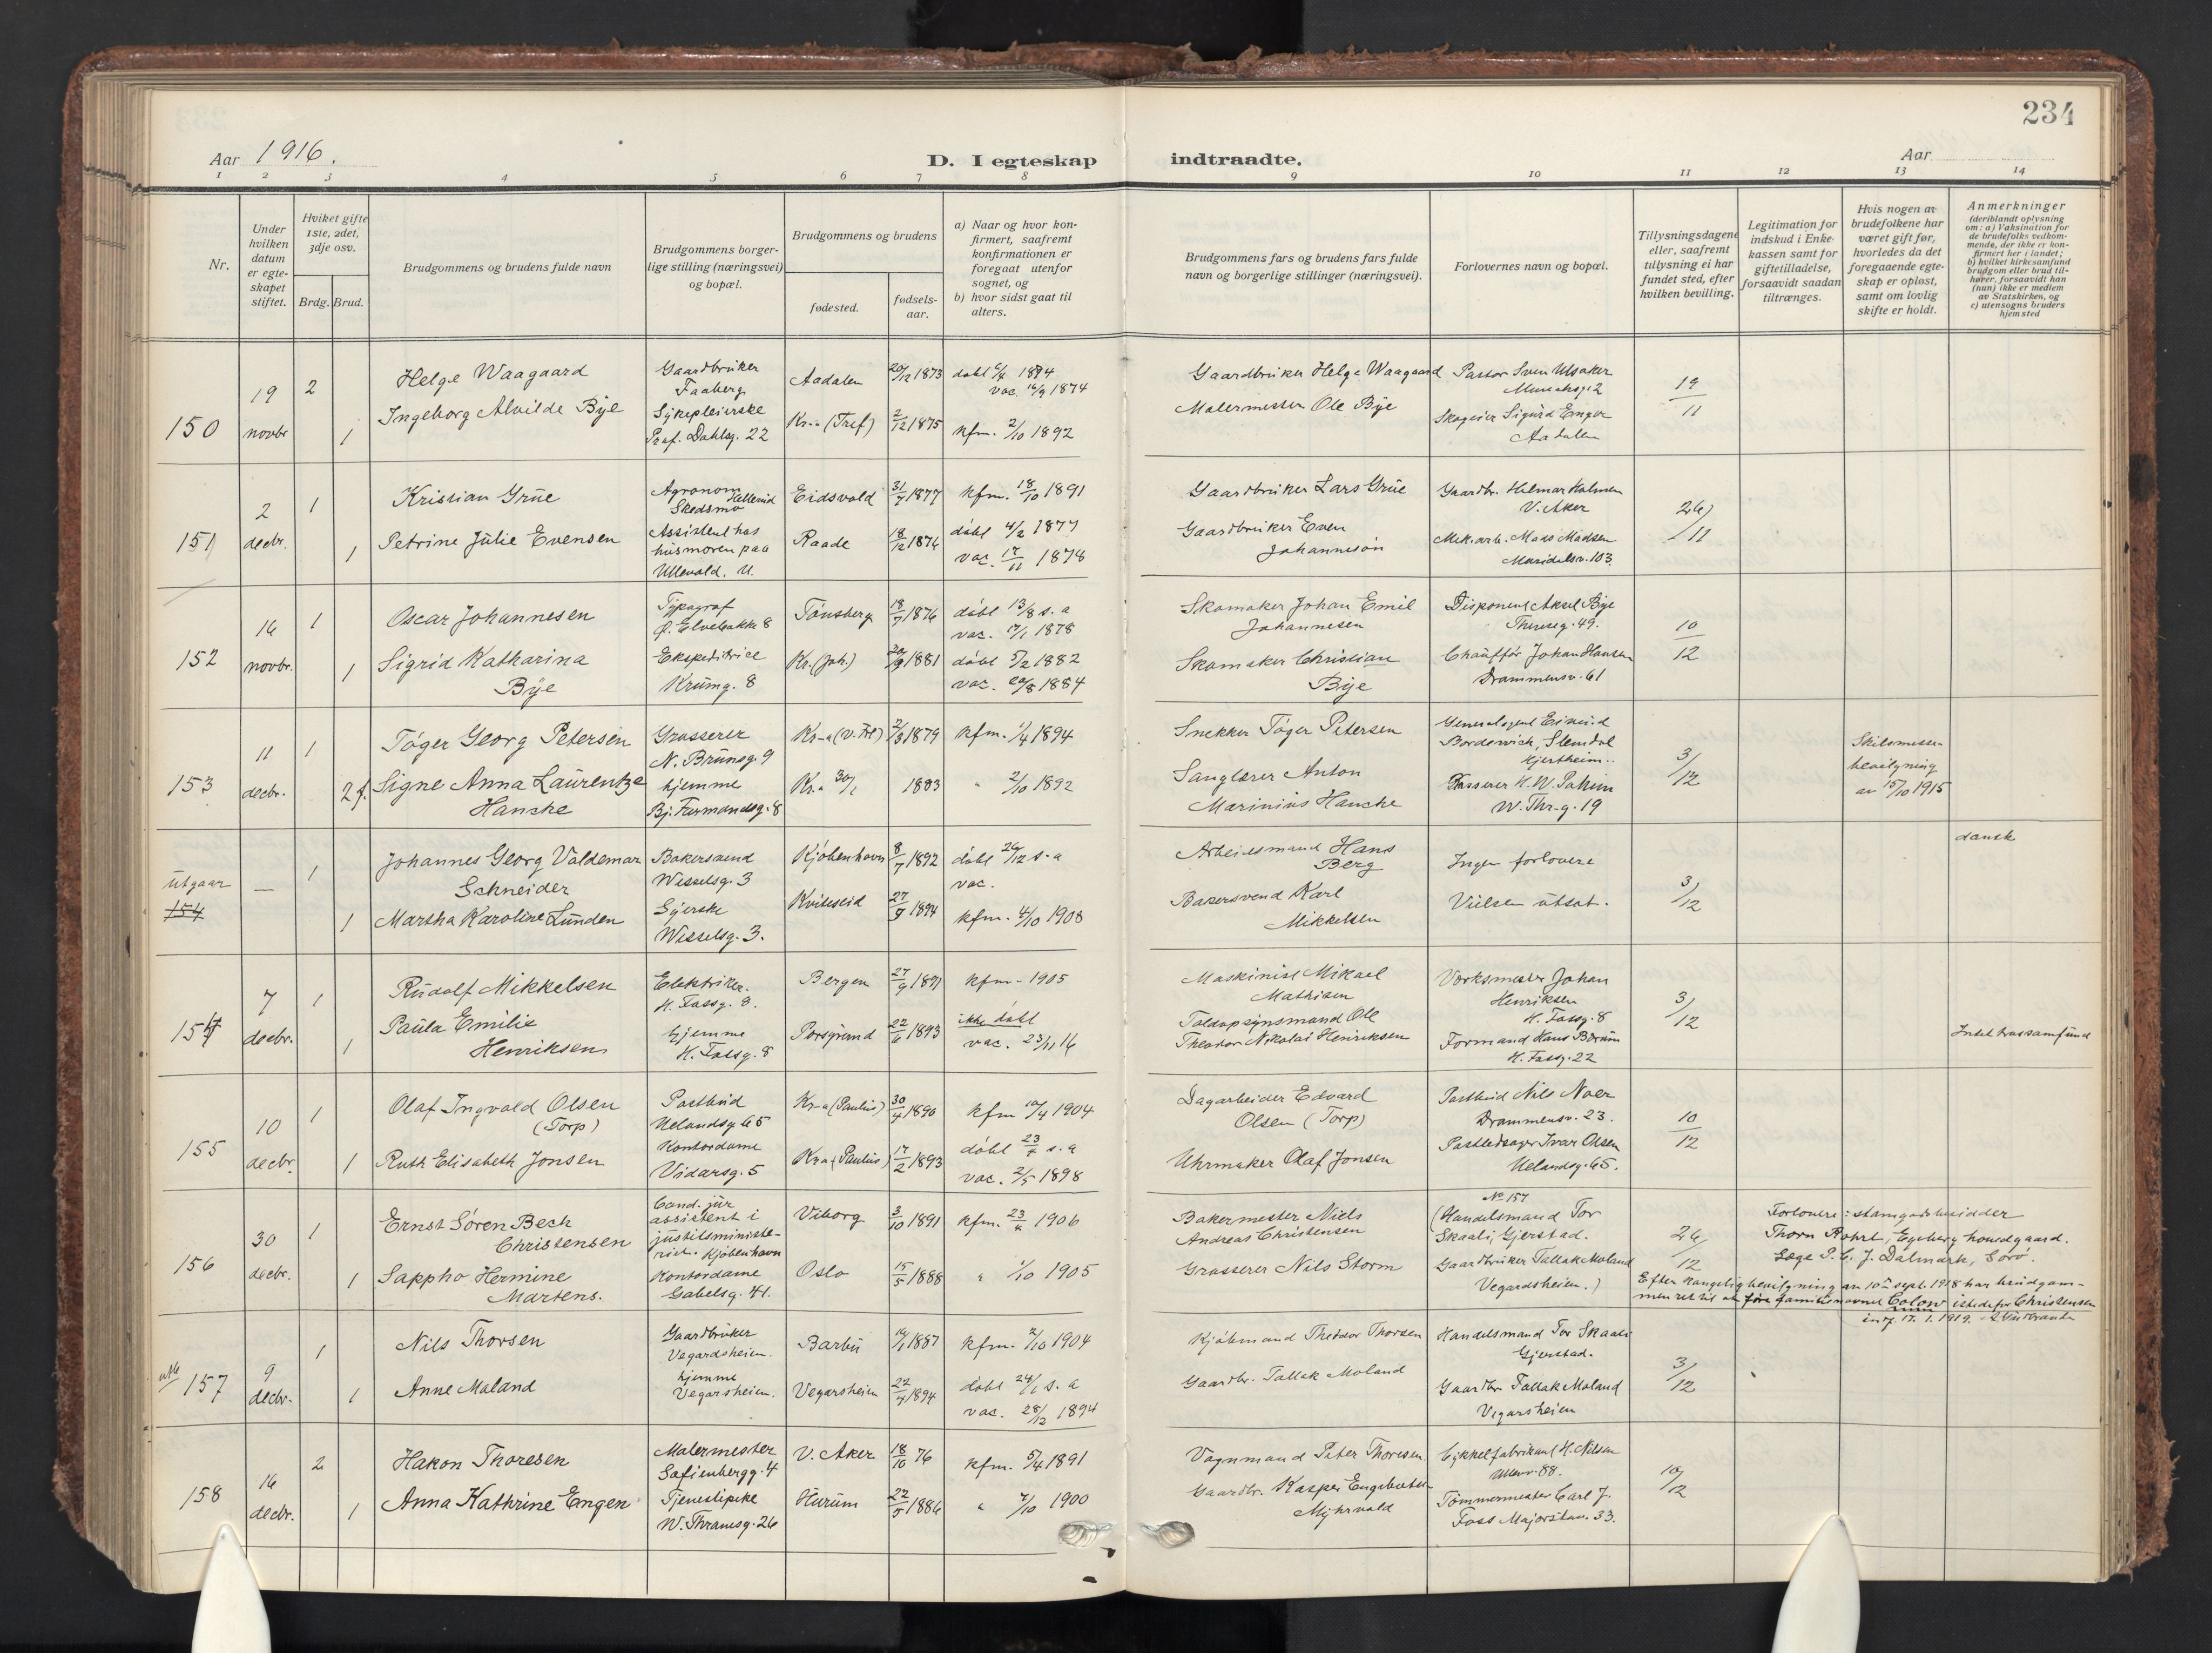 234
Aar 1916.
D. I egteskap indtraadte.
Aar
1 2 3 4 5 6 7 8 9 10 11 12 13 14
Nr.
Under hvilken datum er egteskapet stiftet.
Hvilket gifte 1ste, 2det, 3dje osv.
Brdg. Brud.
Brudgommens og brudens fulde navn
Brudgommens borgerlige stilling (næringsvei) og bopæl.
Brudgommens og brudens
fødested.
fødselsaar.
a) Naar og hvor konfirmert, saafremt konfirmationen er foregaat utenfor sognet, og
b) hvor sidst gaat til alters.
Brudgommens fars og brudens fars fulde navn og borgerlige stillinger (næringsvei).
Forlovernes navn og bopæl.
Tillysningsdagene eller, saafremt tillysning ei har fundet sted, efter hvilken bevilling.
Legitimation for indskud i Enkekassen samt for giftetilladelse, forsaavidt saadan tiltrænges.
Hvis nogen av brudefolkene har været gift før, hvorledes da det foregaaende egteskap er opløst, samt om lovlig skifte er holdt.
Anmerkninger
(deriblandt oplysning om: a) Vaksination for de brudefolks vedkommende, der ikke er konfirmert her i landet; b) hvilket kirkesamfund brudgom eller brud tilhører, forsaavidt han (hun) ikke er medlem av Statskirken, og c) utensogns bruders hjemsted
150
19 novbr
2
1
Helge Waagaard
Ingeborg Alvilde Bye
Gaardbruker
Faaberg
Sykepleierske
Prof. Dahlsg. 22
Aadalen
Kr.a (Tref)
20/12 1873
2/12 1875
døbt 6/4 1874
vac. 16/9 1874
kfm. 2/10 1892
Gaardbruker Helge Waagaard
Malermester Ole Bye
Pastor Sven Ulsaker
Munchsg. 2
Skogeier Sigurd Enger
Aadalen
19/11
151
2 decbr.
1
1
Kristian Grue
Petrine Julie Evensen
Agronom
Skedsmo
Assistent hos
husmoren paa
Ullevold. U.
Eidsvold
Raade
31/7 1877
18/12 1876
kfm. 18/10 1891
døbt 4/2 1877
vac. 17/11 1878
Gaardbruker Lars Grue
Gaardbruker Even
Johannesøn
Gaardbr. Helmar Holmen
V. Aker
Mek.arb. Maas Madsen
Maridalsv. 103
26/11
152
16 novbr.
1
1
Oscar Johannesen
Sigrid Katharina
Bye
Typograf
Ø. Elvebakke 8
Ekspeditrice
Krumg. 8
Tønsberg
Kr. (Joh.)
18/7 1876
20/9 1881
døbt 13/8 s. a
vac. 17/1 1878
døbt 5/2 1882
vac. 20/8 1884
Skomaker Johan Emil
Johannesen
Skomaker Christian
Bye
Disponent Aksel Bye
Thereseg. 49.
Chauffør Johan Hansen
Drammensv. 61
10/12
153
11 decbr.
1
2 f.
Tøger Georg Petersen
Signe Anna Laurentze
Hancke
Grosserer
N. Brunsg. 9
hjemme
Bj. Farmandsg. 8
Kr-a (V. Frel)
Kr.a 30/1
2/3 1879
1883
kfm. 1/4 1894
" 2/10 1892
Snekker Tøger Petersen
Sanglærer Anton
Marinius Hancke
Generalagent Eimund
Bordewich, Slemdal
Kasserer H. W.
W. Thr. g. 19
3/12
Skilsmisse-
bevilgning
av 15/10 1915
utgaar
154
—
1
1
Johannes Georg Valdemar
Schneider
Martha Karoline Lunden
Bakersvend
Wesselsg. 3
Syerske
Wesselsg. 3.
Kjøbenhavn
Kviteseid
8/7 1892
27/9 1894
døbt 26/12 s. a
vac.
kfm. 4/10 1908
Arbeidsmand Hans
Berg
Bakersvend Karl
Mikkelsen
Ingen forlovere
Vielsen utsat.
3/12
dansk
154
7 decbr.
1
1
Rudolf Mikkelsen
Paula Emilie
Henriksen
Elektriker.
H. Fossg. 8.
hjemme
H. Fossg. 8
Bergen
Porsgrund
27/9 1891
22/6 1893
kfm - 1905
ikke døbt
vac. 23/11 16
Maskinist Mikael
Mathisen
Toldopsynsmand Ole
Theodor Nikolai Henriksen
Verksmester Johan
Henriksen
H. Fossg. 8
Formand Hans Bærum
H. Fossg. 22
3/12
Intet trossamfund
155
10 decbr
1
1
Olaf Ingvald Olsen
(Torp)
Ruth Elisabeth Jonsen
Postbud
Uelandsg 65
Kontordame
Vidarsg. 5
Kr-a (Paulus)
Kr.a (Paulus)
30/4 1890
17/2 1893
kfm 10/4 1904
døbt 23/4 s. a
vac. 2/5 1898
Dagarbeider Edvard
Olsen (Torp)
Uhrmaker Olaf Jonsen
Postbud Nils Noer
Drammensv. 23.
Postledsager Ivar Olsen
Uelandsg. 65.
10/12
156
30 decbr.
1
1
Ernst Søren Bech
Christensen
Sappho Hermine
Martens.
Cand. jur
assistent i
justitsministe-
riet. Kjøbenhavn
Kontordame
Gabelsg. 41.
Viborg
Oslo
3/10 1891
15/5 1888
kfm. 23/4 1906
" 1/10 1905
Bakermester Niels
Andreas Christensen
Grosserer Nils Storm
No 157
(Handelsmand Tor
Skaali, Gjerstad.
Gaardbruker Tallak Moland
Vegardsheien.)
26/12
Forlovere: stamgodsbesidder
Thorn Rohrt, Egeberg hovedgaard.
Læge P. C. J. Dalmark, Sorø.
Efter kongelig bevilgning av 10de sept. 1918 har brudgom-
men ret til at føre familienavnet Colow istedefor Christensen
indf. 17. 1. 1919.
utb 157
9 decbr.
1
1
Nils Thorsen
Anne Moland
Gaardbruker
Vegardsheien.
hjemme
Vegarsheien.
Barbu
Vegarsheien
19/1 1887
22/4 1894
kfm. 2/10 1904
døbt 24/6 s. a
vac. 28/12 1894
Kjøbmand Theodor Thorsen
Gaardbr. Tallak Moland
Handelsmand Tor Skaali
Gjerstad.
Gaardbr Tallak Moland
Vegarsheien
3/12
158
16 decbr.
2
1
Hakon Thoresen
Anna Kathrine Engen
Malermester
Sofienbergg. 4
Tjenestepike
W. Thranesg. 26
V. Aker
Hurum
18/10 76
22/5 1886
kfm. 5/4 1891
" 7/10 1900
Vognmand Peter Thoresen
Gaardbr. Kasper Engebretsen
Myhrvold
Cykkelfabrikant H. Nilsen
Ullev. 88.
Tømmermester Carl J.
Foss Majorstuv. 33.
10/12